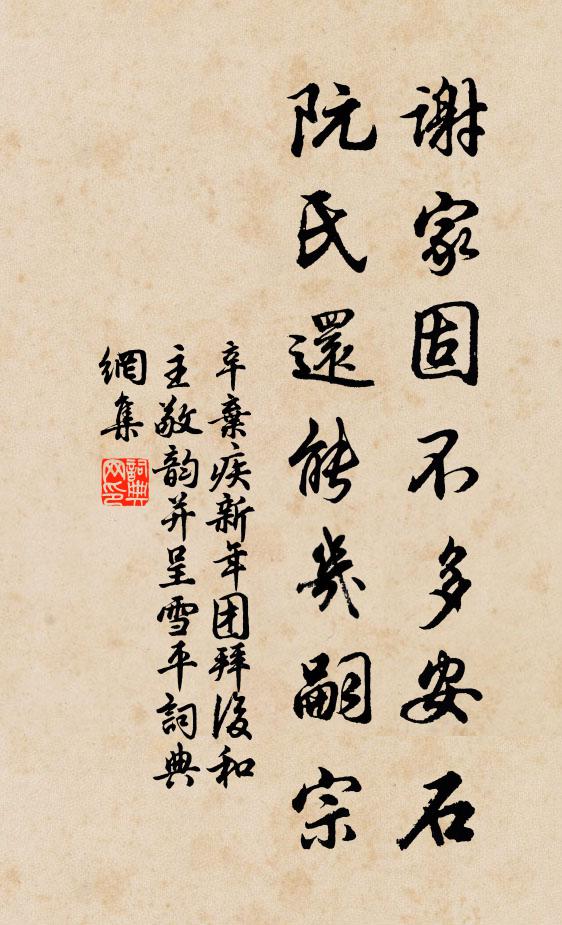 謝家固不多安石
阮氏還能幾嗣宗
辛棄疾新年团拜後和
主敬韵并呈雪平詞典
網集
詞典
网印